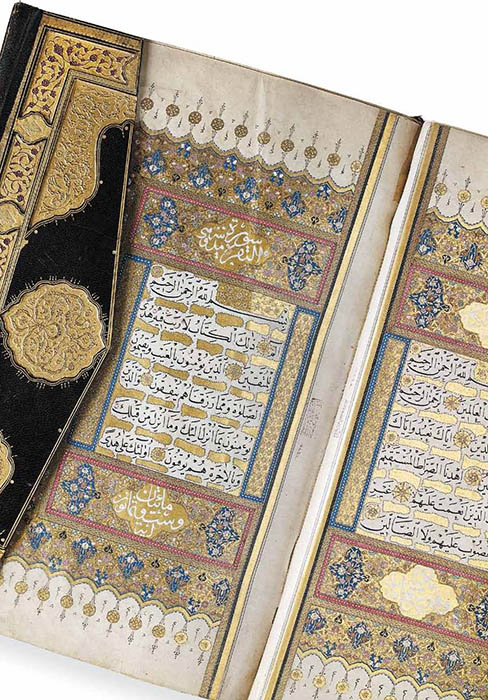 الله الرحمن الرحيم
الرحمن الرحيم
اياك نعبد واياك
اهدنا الصراط المستقيم
انعمت عليهم غير
المغضوب عليهم ولا الضالين
سورة
البقرة مدنية
بسم الله الرحمن الرحيم
الم ذلك الكتاب لا ريب فيه هدى
للمتقين الذين يؤمنون بالغيب ويقيمون
الصلوة ومما رزقناهم ينفقون والذين
يؤمنون بما انزل اليك وما انزل من قبلك
وبالاخرة هم يوقنون اولئك على هدى
مائتان
وست وثمانون
آية